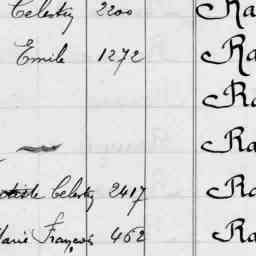 Celestin 2200 Ra
Emile 1272 Ra
Ra
Ra
Celestin 2417 Ra
Marie François 462 Ra